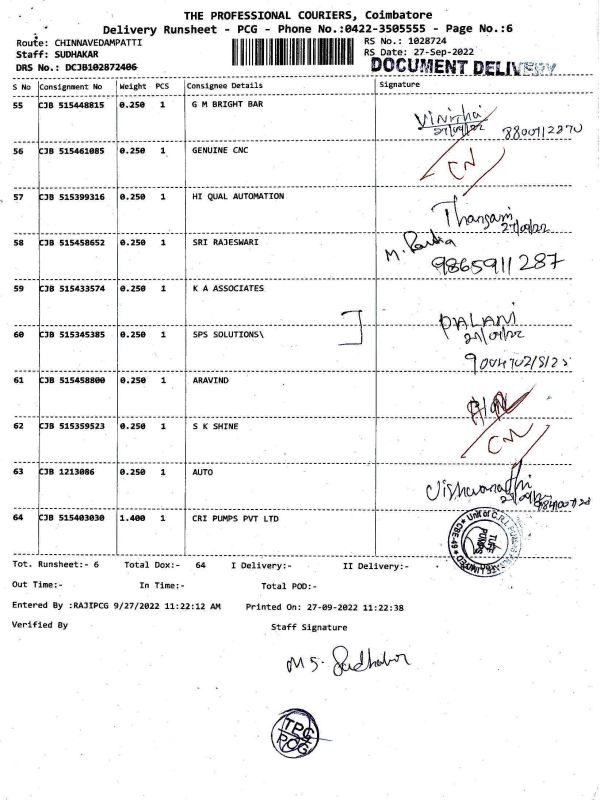 THE PROFESSIONAL COURIERS, Coimbatore
Delivery Runsheet - PCG - Phone No.:0422-3505555 - Page No.:6
Route: CHINNAVEDAMPATTI RS No.: 1028724
Staff: SUDHAKAR RS Date: 27-Sep-2022
DRS No.: DCJB102872406 DOCUMENT DELIVERY
S No Consignment No Weight PCS Consignee Details Signature
55 CJB 515448815 0.250 1 G M BRIGHT BAR
27/09/22
56 CJB 515461085 0.250 1 GENUINE CNC
CN
57 CJB 515399316 0.250 1 HI QUAL AUTOMATION
27/09/22
58 CJB 515458652 0.250 1 SRI RAJESWARI
9865911287
59 CJB 515433574 0.250 1 K A ASSOCIATES
PALANI
60 CJB 515345385 0.250 1 SPS SOLUTIONS\
61 CJB 515458800 0.250 1 ARAVIND
62 CJB 515359523 0.250 1 S K SHINE
CN
63 CJB 1213086 0.250 1 AUTO
64 CJB 515403030 1.400 1 CRI PUMPS PVT LTD
Tot. Runsheet:- 6 Total Dox:- 64 I Delivery:- II Delivery:-
Out Time:- In Time:- Total POD:-
Entered By :RAJIPCG 9/27/2022 11:22:12 AM Printed On: 27-09-2022 11:22:38
Verified By Staff Signature
M S. Sudhakar
TPC
PCG